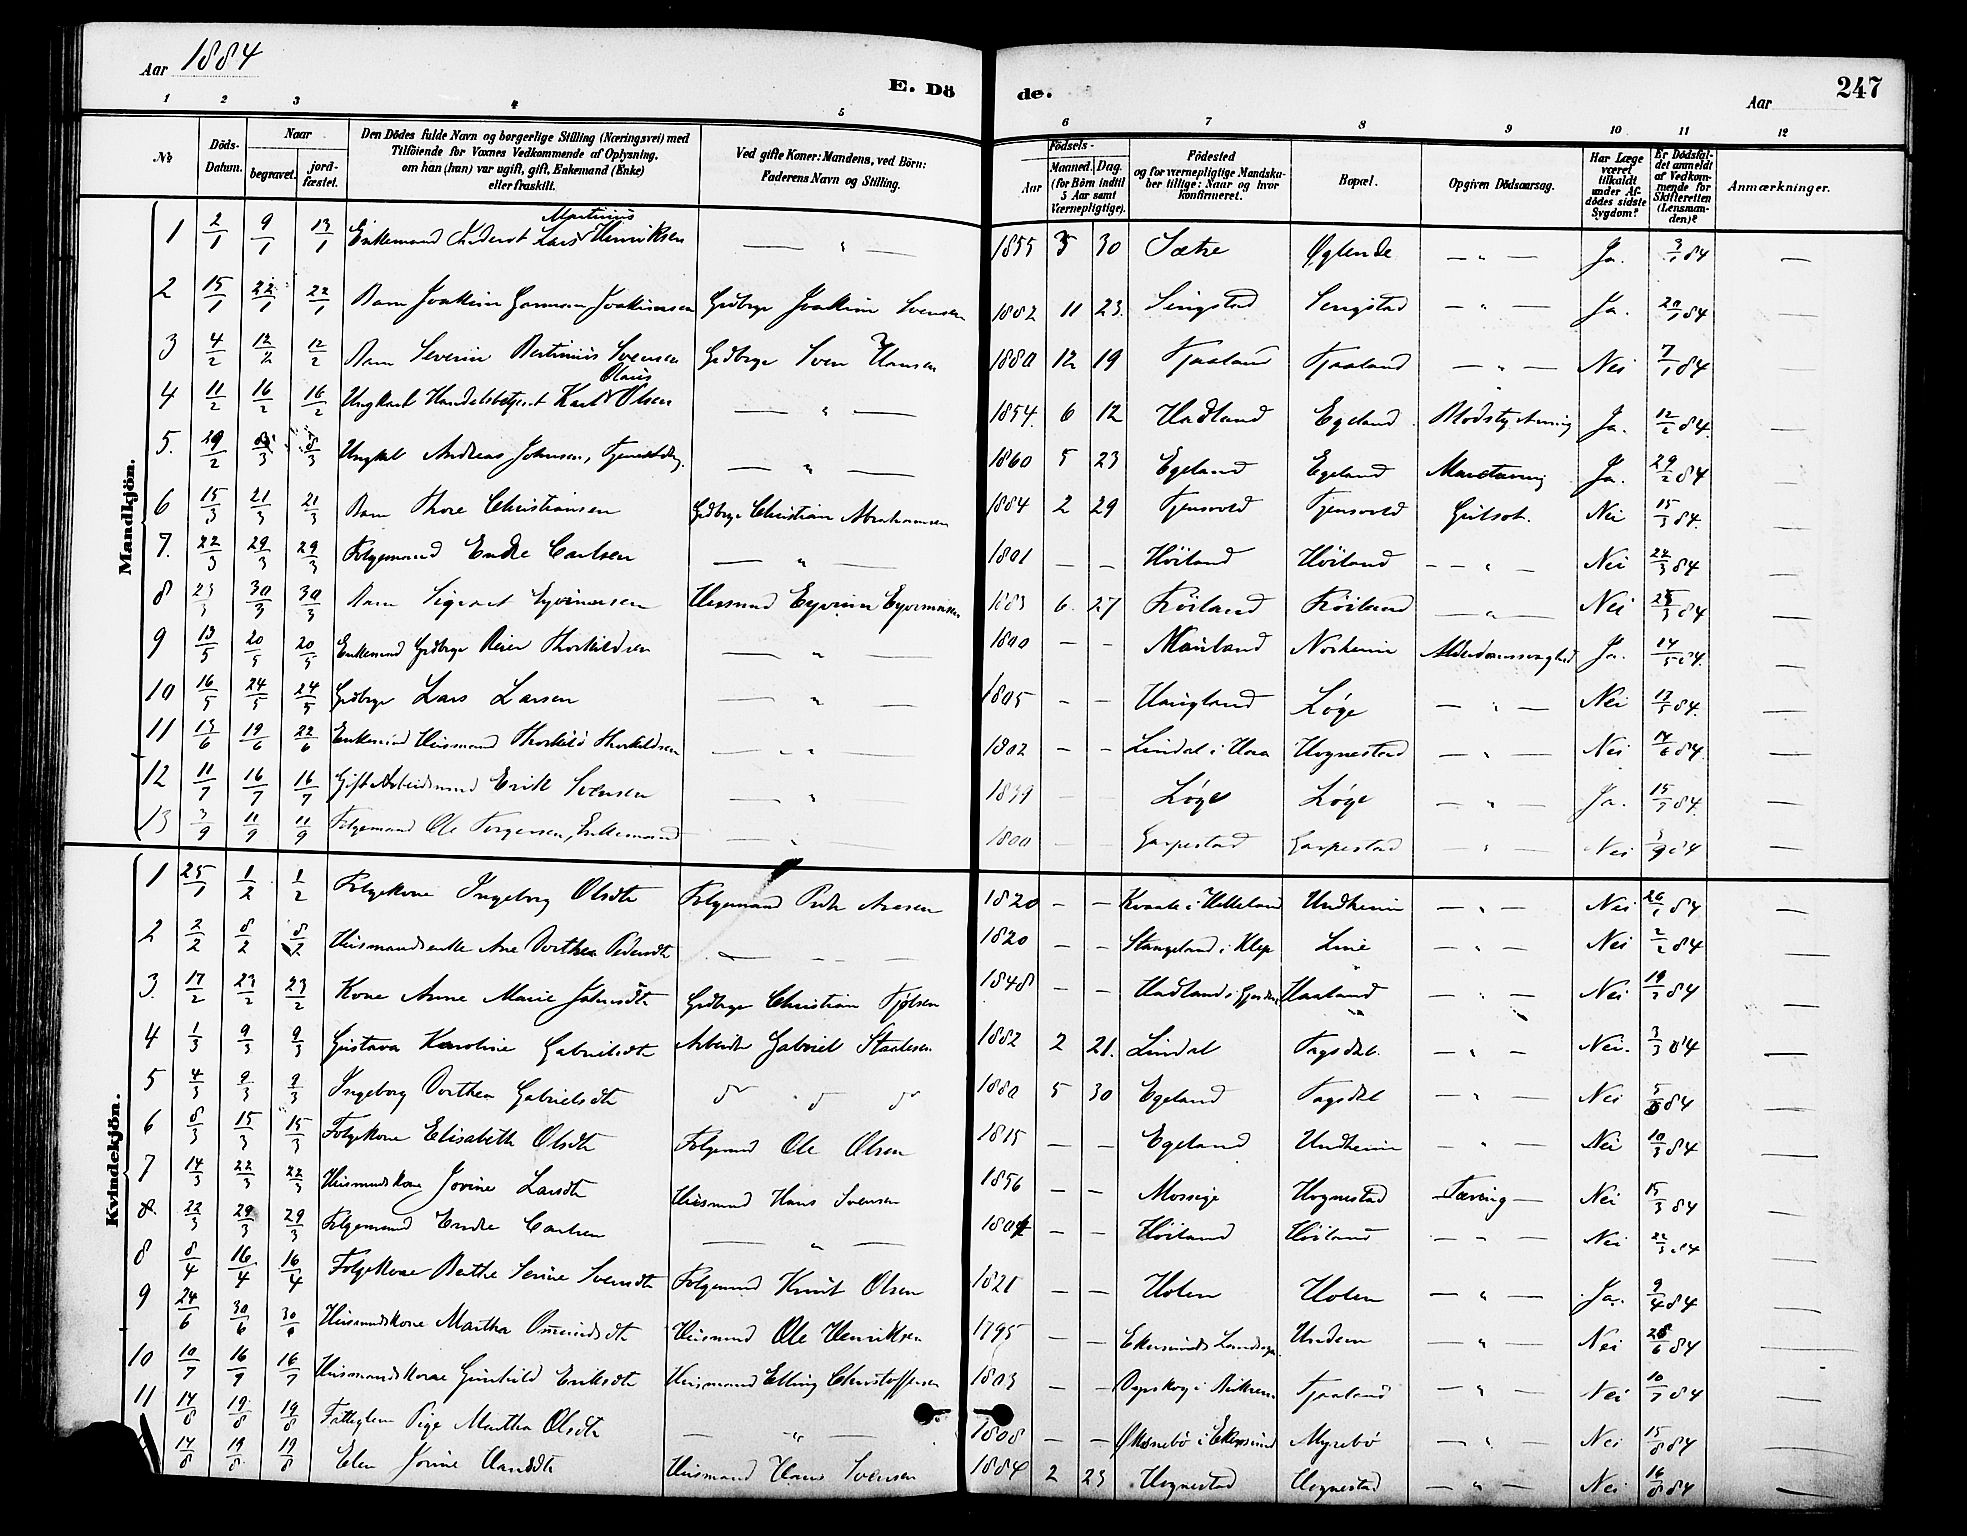 Aar 1884
E. Dö de.
Aar 247
1 2 3 4 5 6 7 8 9 10 11 12
No
Döds-Datum.
Naar
begravet.
jord-fæstet.
Den Dödes fulde Navn og borgerlige Stilling (Næringsvei) med Tilföiende for Voxnes Vedkommende af Oplysning, om han (hun) var ugift, gift, Enkemand (Enke) eller fraskilt.
Ved gifte Koner: Mandens, ved Börn: Faderens Navn og Stilling.
Födsels-
Aar
Maaned. Dag.
(for Börn indtil 5 Aar samt Værnepligtige).
Födested
og for værnepligtige Mandskaber tillige: Naar og hvor konfirmeret.
Bopæl.
Opgiven Dödsaarsag.
Har Læge været tilkaldt under Afdödes sidste Sygdom?
Er Dödsfaldet anmeldt af Vedkommende for Skifteretten (Lensmanden)?
Anmærkninger.
Mandkjön.
1 2/1 9/1 13/1 Enkemand Lars Martinius Henriksen — " — 1855 5 30 Sætre Øglende — " — Ja. 3/1 84 —
2 15/1 22/1 22/1 Barn Joakim Joakimsen Grdbrgr Joakim Svensen 1882 11 23. Sengstad — " — Ja. 20/1 84 —
3 4/2 12/2 12/2 Barn Severin Bertinius Svensen Grdbrgr Sven Hansen 1880 12 19 Tjaaland Tjaaland — " — Nei 7/1 84 —
4 11/2 16/2 16/2 Ungkarl Handelsbetjent Karl Olaus Olsen — " — 1854. 6 12 Hadland Egeland Blodstyrtning Ja. 12/2 84. —
5. 29/2 8/3 8/3 Ungkarl Andreas Johnsen, — " — 1860 5 23 Egeland Egeland Ja. 29/2 84 —
6 15/3 21/3 21/3 Barn Thore Christiansen Grdbrgr Christian Abrahamsen 1884 2 29 Tjensvold Tjensvold Gulsot. Nei 15/3 84. —
7. 22/3 29/3 29/3 Folgemand Endre Carlsen — " — 1801 — — Höiland Höiland — " — Nei 22/3 84 —
8 23/3 30/3 30/3 Barn Husmand 1883 6. 27 Röiland Röiland — " — Nei 25/3 84 —
9 13/5 20/5 20/5 Enkemand Grdbrgr Reier Thorkildsen — " — 1800 — — Norheim Alderdomssvaghed Ja. 14/5 84. —
10 16/5 24/5 24/5 Grdbrgr Lars Larsen — " — 1805 — — Haugland Løge — " — Nei 17/5 84. —
11 13/6 19/6 22/6 Enkemand Husmand Thorkild Thorkildsen — " — 1802 — — Lindal i Haa Hognestad — " — Nei 14/6 84. —
12 11/7 16/7 16/7 Gift Arbeidsmand Erik Svensen — " — 1839 — — Løge Løge — " — Ja. 15/7 84. —
13 3/9 11/9 11/9 Folgemand Ole Torgersen, Enkemand — " — 1800 — — Garpestad Garpestad — " — Nei 3/9 84 —
Kvindekjön.
1 25/1 1/2 1/2 Folgekone Ingeborg Olsdtr Folgemand Peder Aasen 1820 — — Kvale i Helleland Undheim — " — Nei 26/1 84 —
2 2/2 8/2 8/2 Husmandsenke Ane Dorthea Pedersdtr — 1820 — — Stangeland i Klep Line — " — Nei 2/2 84 —
3. 17/2 23/2 23/2 Kone Anne Marie Johnsdtr Grdbrgr Christian Tjølsen 1848 — — Hadland i Gjesdal Haaland — " — Nei 19/2 84 —
4 1/3 9/3 9/3 Gustava Karoline Gabrielsdtr Arbeidr Gabriel Staalesen 1882 2 21. Lindal Tagsdal. — " — Nei. 3/3 84 —
5 4/3 9/3 9/3 Ingeborg Dorthea Gabrielsdtr do do do 1880 5 30 Egeland Tagsdal — " — Nei 5/3 84 —
6 8/3 15/3 15/3 Folgekone Elisabeth Olsdtr Folgemand Ole Olsen 1815 — — Egeland Undheim — " — Nei 10/3 84 —
7 14/3 22/3 22/3 Husmandskone Jorine Larsdtr Husmand Hans Svensen 1856 — — Mossige Hognestad — Tæring — Nei 15/3 84 —
8. 22/3 29/3 29/3 Folgemand Endre Carlsen — " — 1801 — — Höiland Höiland — " — Nei 22/3 84 —
8 8/4 16/4 16/4 Folgekone Berthe Serine Svendsdtr Folgemand Knut Olsen 1821 — — Holen Holen — " — Ja. 9/4 84 —
9 24/6 30/6 30/6 Husmandskone Martha Omundsdtr Husmand Ole Henriksen 1795 — — Ekersunds Landsogn. — " — Nei 28/6 84 —
10 10/7 16/7 16/7 Husmandskone Gunhild Eriksdtr Husmand Elling Christoffersen 1803 — — Tjaaland — " — Nei 10/7 84 —
11 14/8 19/8 19/8 Fattiglem Pige Martha Olsdtr — " — 1808 — — i Ekersund Myrebö — " — Nei 15/8 84 —
14/8 19/8 19/8 Elen Jorine Hansdtr Husmand Hans Svensen 1884 2 23 Hognestad Hognestad — " — Nei 16/8 84 —